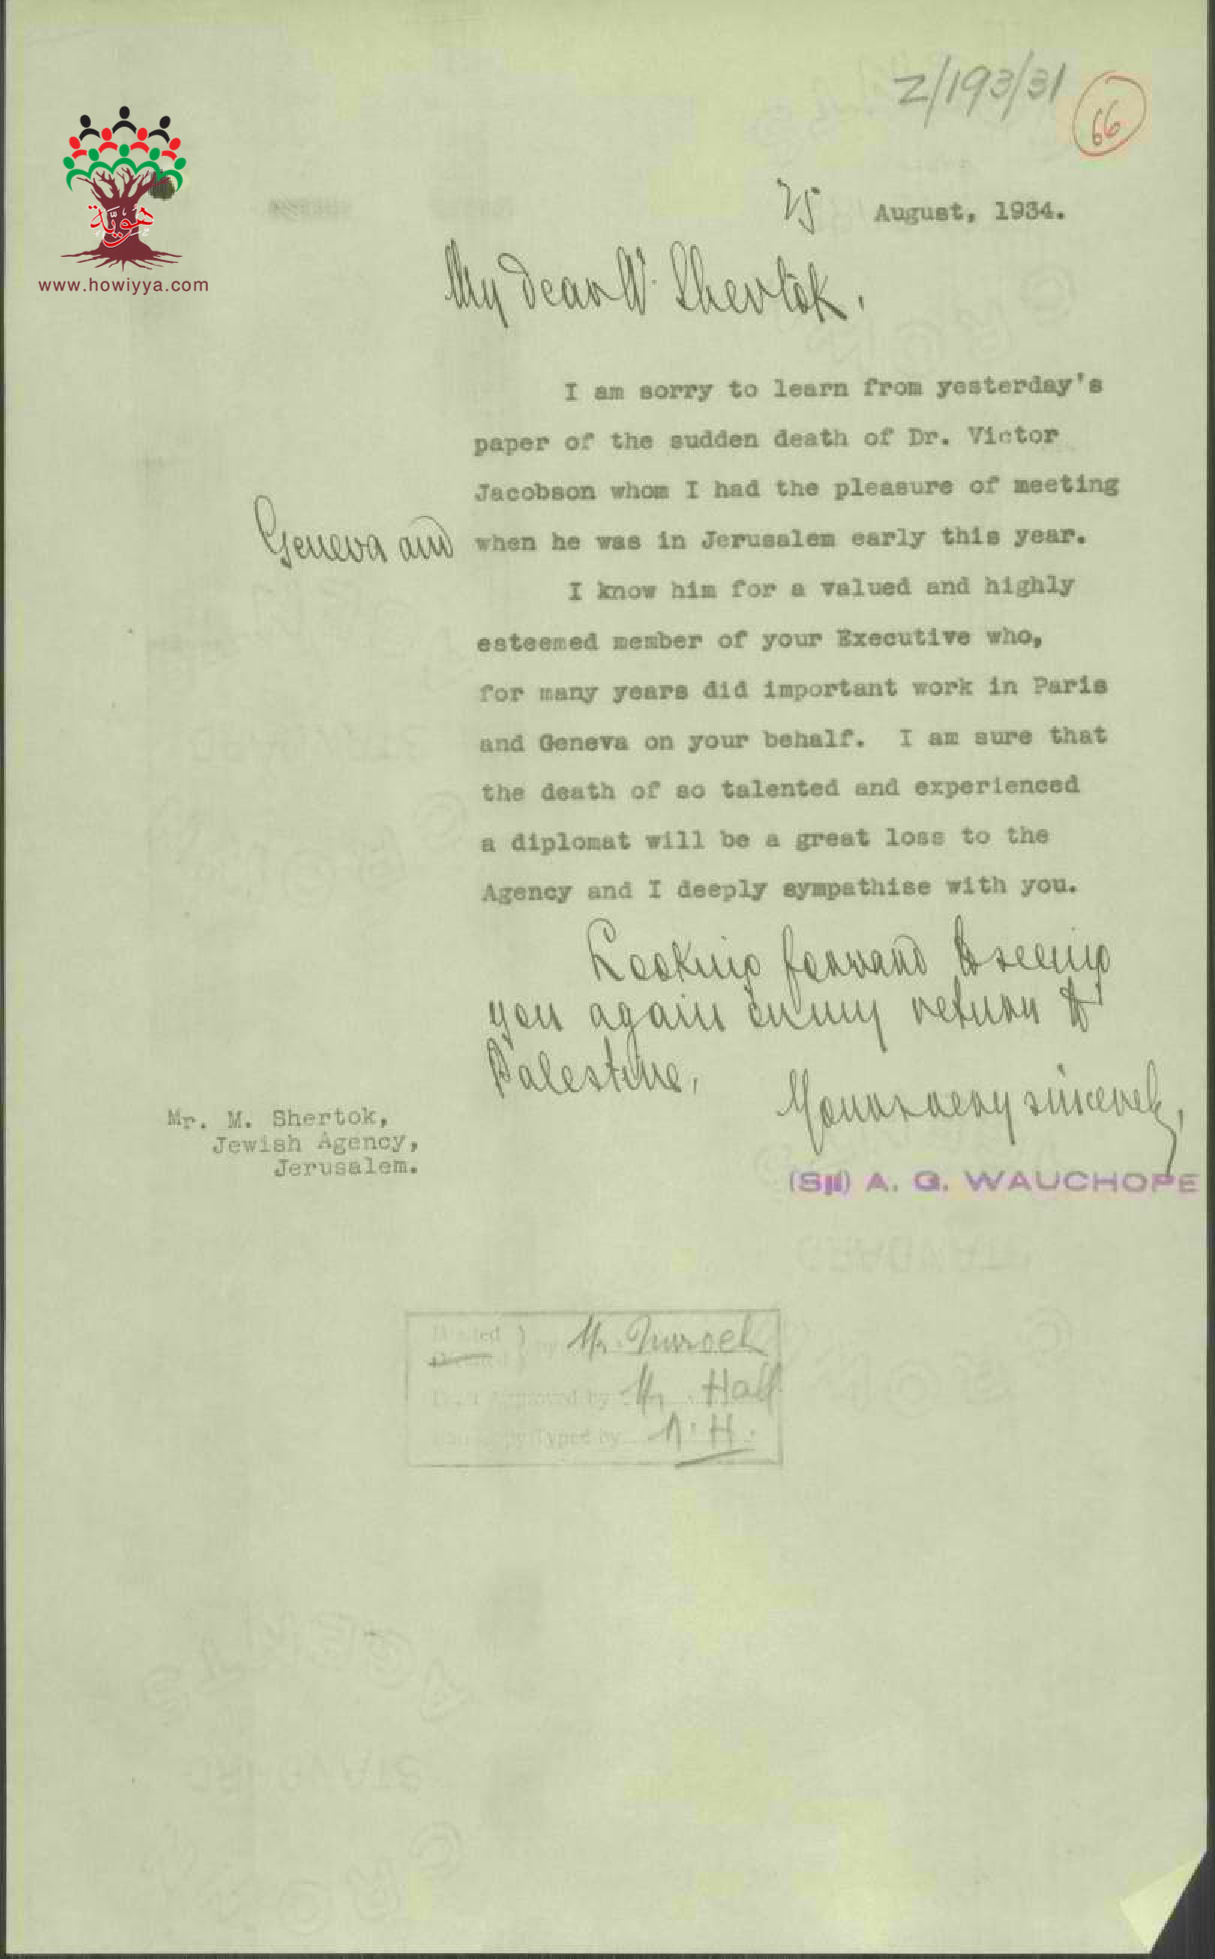 Z/193/31
66
هَوِيَّة
www.howiyya.com
25 August, 1934.
My dear Mr Shertok.
I am sorry to learn from yesterday's
paper of the sudden death of Dr. Victor
Jacobson whom I had the pleasure of meeting
Geneva and when he was in Jerusalem early this year.
I know him for a valued and highly
esteemed member of your Executive who,
for many years did important work in Paris
and Geneva on your behalf. I am sure that
the death of so talented and experienced
a diplomat will be a great loss to the
Agency and I deeply sympathise with you.
Looking forward to seeing
you again on my return to
Palestine,
Yours very sincerely,
Mr. M. Shertok,
Jewish Agency,
Jerusalem.
(Sd) A. G. WAUCHOPE
by Mr
Draft Approved by Mr Hall
Copy Typed by N.H.